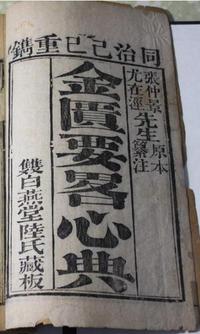 同治己巳重鐫
張仲景先生原本
尤在涇先生纂注
金匱要畧心典
雙白燕堂陸氏藏板